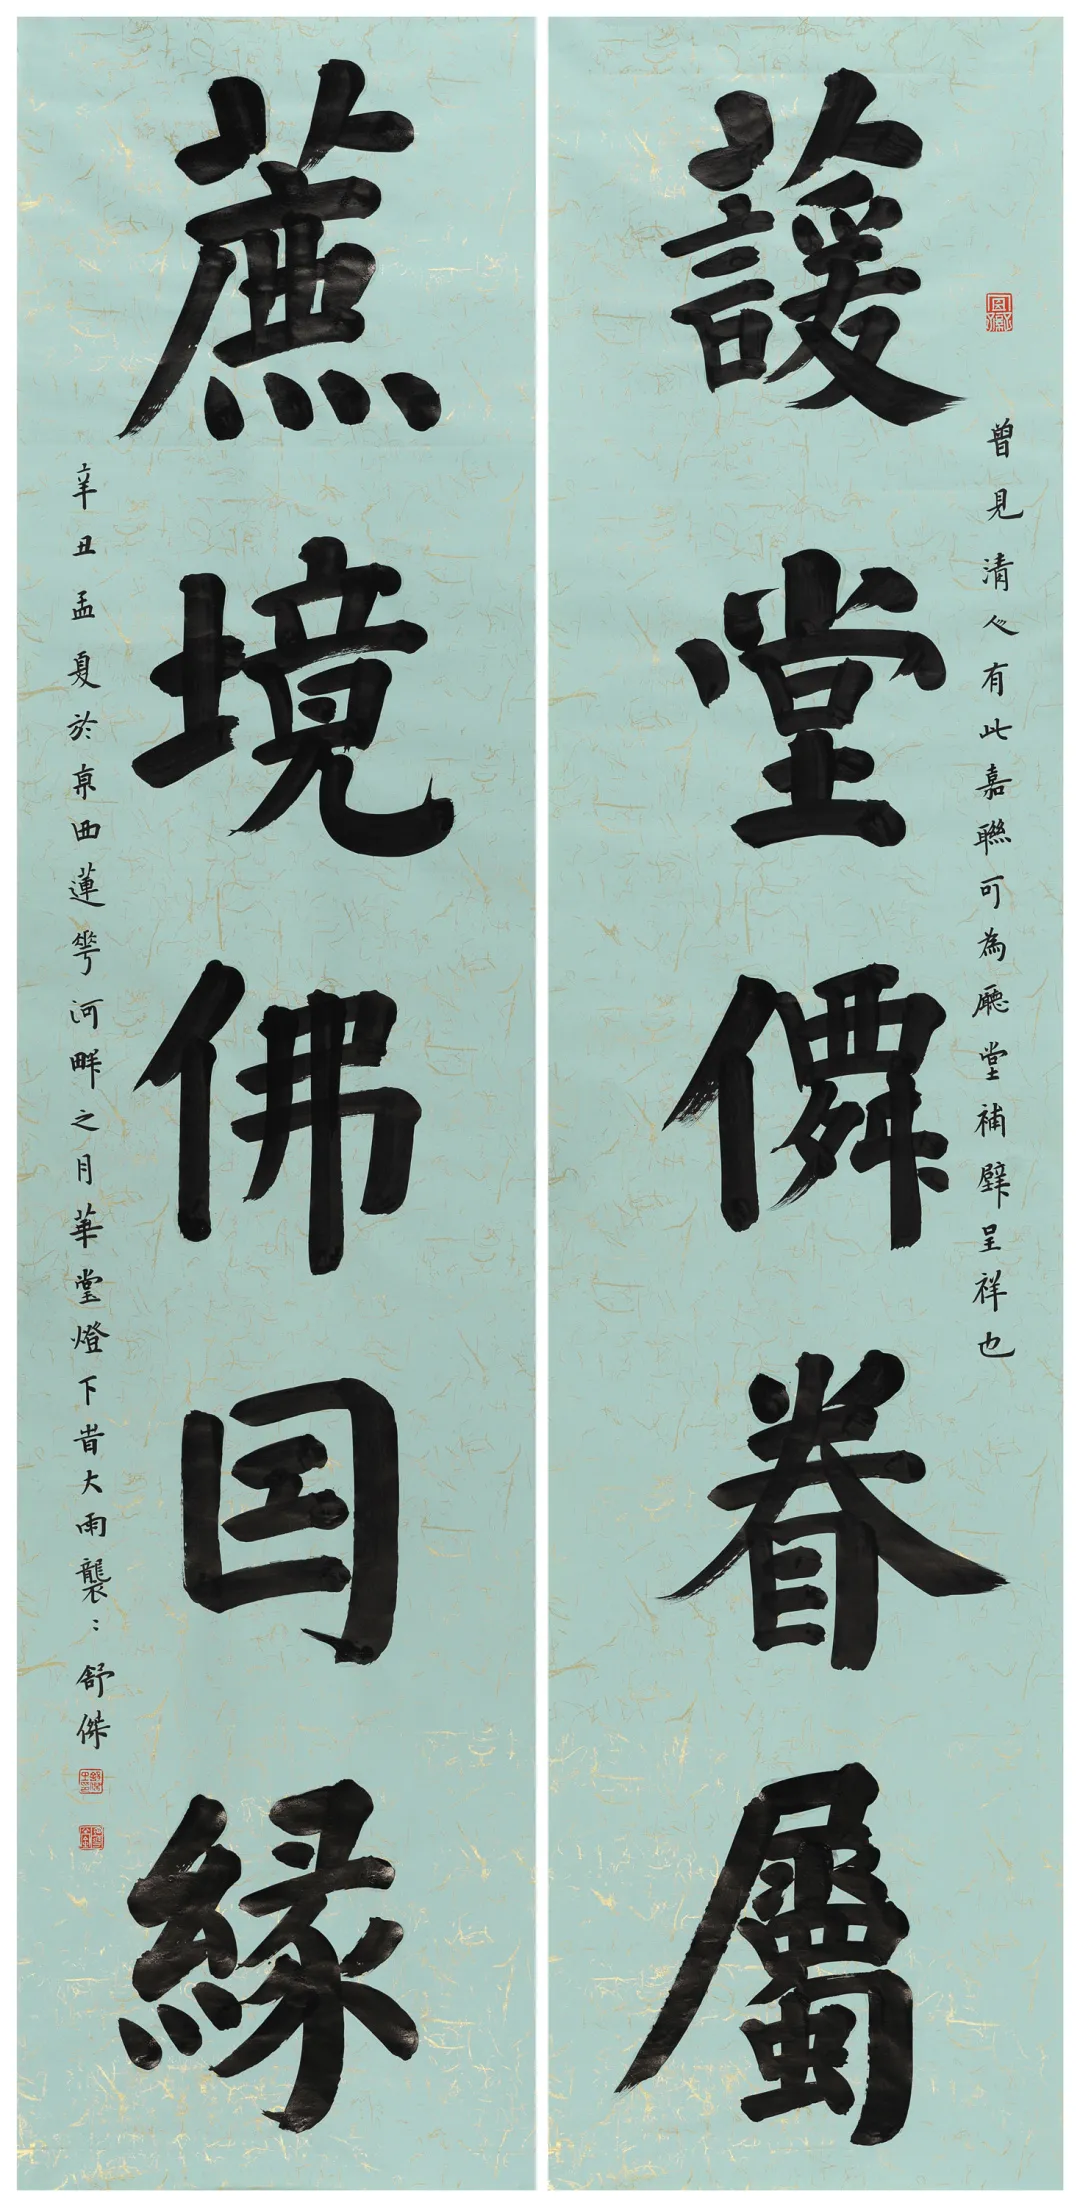 曾見清人有此嘉聯可為廳堂補壁呈祥也
蘐堂僊眷屬
蔗境佛囙緣
辛丑孟夏於京西蓮花河畔之月華堂燈下旹大雨襲〻舒傑